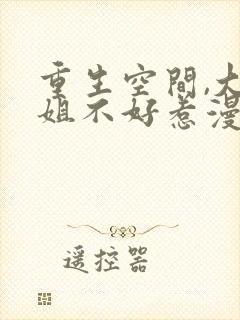 重生空間,大
姐不好惹漫
遥控器